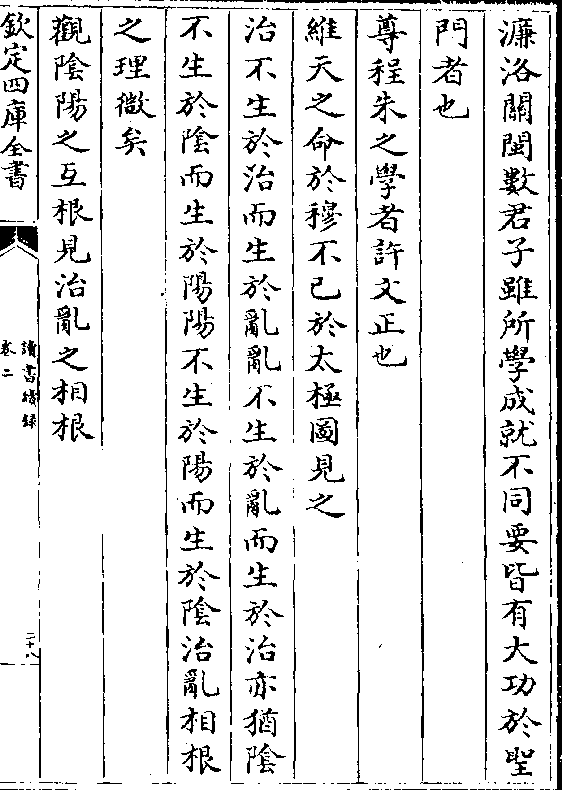 濂洛關閩數君子雖所學成就不同要皆有大功於聖
門者也
尊程朱之學者許文正也
維天之命於穆不已於太極圖見之
治不生於治而生於亂亂不生於亂而生於治亦猶陰
不生於陰而生於陽陽不生於陽而生於陰治亂相根
之理微矣
觀陰陽之互根見治亂之相根
欽定四庫全書
讀書續錄
卷二
二十八